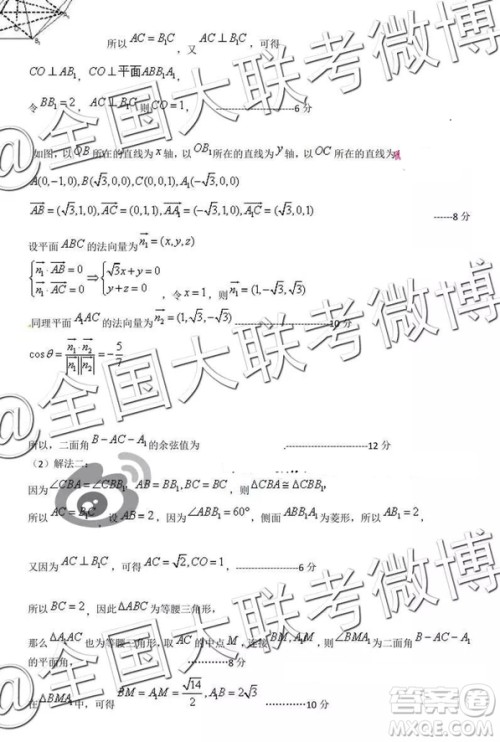 所以 AC = B₁C，又 AC⊥B₁C，可得
CO⊥AB₁，CO⊥平面ABB₁A₁，
令 BB₁ = 2，AC⊥B₁C，则 CO = 1， 6 分
如图，以 OB 所在的直线为 x 轴，以 OB₁ 所在的直线为 y 轴，以 OC 所在的直线为
A(0,-1,0), B(√3,0,0), C(0,0,1), A₁(-√3,0,0)
AB = (√3,1,0), AC = (0,1,1), AA₁ = (-√3,1,0), A₁C = (√3,0,1) ------8 分
设平面 ABC 的法向量为 n₁ = (x,y,z)
{n₁·AB = 0, n₁·AC = 0 ⇒ {√3x + y = 0, y + z = 0，令 x = 1，则 n₁ = (1,-√3,√3)
同理平面 A₁AC 的法向量为 n₂ = (1,√3,-√3) 10 分
cosθ = n₁·n₂ / |n₁||n₂| = -5/7
所以，二面角 B-AC-A₁ 的余弦值为 12 分
（2）解法二：
因为 ∠CBA = ∠CBB₁，AB = BB₁, BC = BC，则 ΔCBA ≅ ΔCBB₁
所以，AC = B₁C，设 AB = 2，因为 ∠ABB₁ = 60°，侧面 ABB₁A₁ 为菱形，所以 AB₁ = 2
又因为 AC⊥B₁C，可得 AC = √2, CO = 1， 6 分
所以 BC = 2，因此 ΔABC 为等腰三角形，
那么 ΔA₁AC 也为等腰三角形，取 AC 的中点 M，连接 BM, A₁M，则 ∠BMA₁ 为二面角 B-AC-A₁
的平面角， 8 分
在 ΔBMA₁ 中，可得 BM = A₁M = √14/2, A₁B = 2√3 10 分
@全国大联考微博
@全国大联考微博
@全国大联考微博
答案圈
MXQE.COM